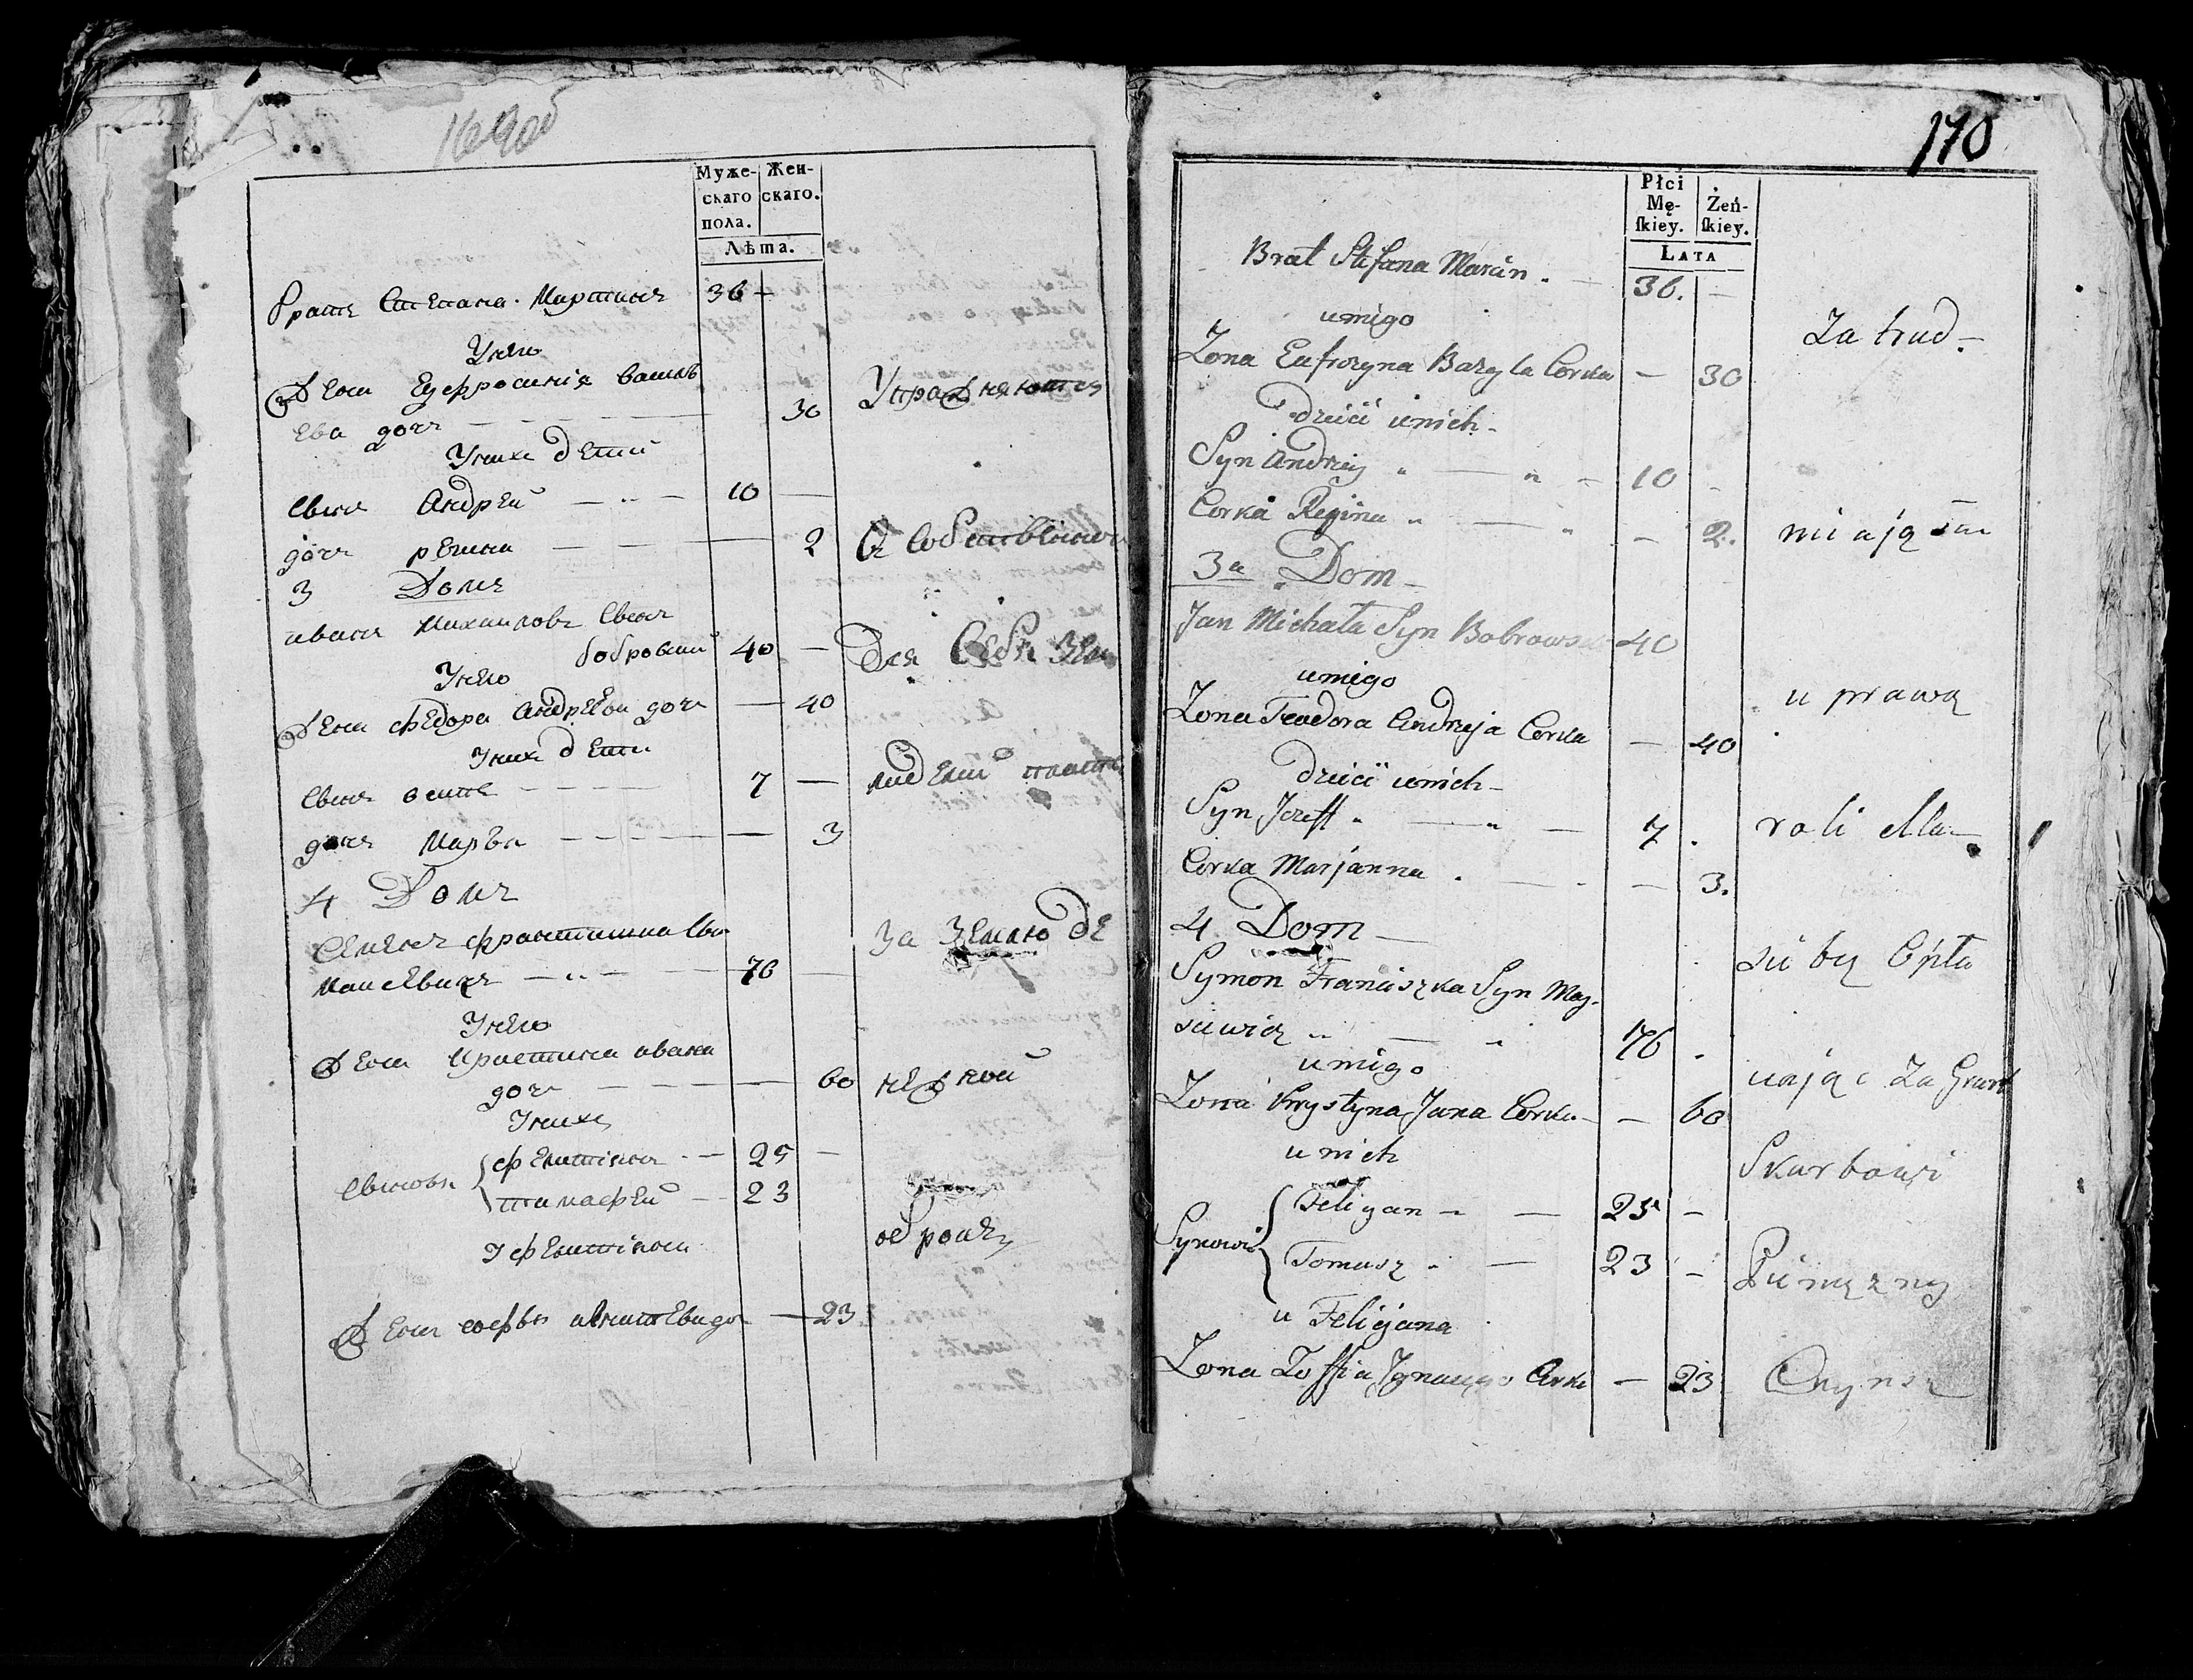 169об
Муже-
скаго
пола.
Жен-
скаго.
Лѣта.
братъ Степана Мартинъ 36 -
Унего
Жена Еуфросинія Василь
ева дочь - - - 30
Упражняются
Унихъ дети
Сынъ Андрей - " - 10 —
дочь - - — 2
в Собственномъ
3 Домъ
иванъ Михаиловъ Сынъ
бобровски 40 —
для Себя
Унего
Жена Федора Андреева дочь — 40
Унихъ дети
Сынъ осипъ - - - - 7 —
дочь Марья - - - - — 3
4 Домъ
Семенъ францишка Сын
- " - 76 —
за Землю де
Унего
Жена Кристина ивана
дочь - - - — 60
нежной
Унихъ
Сыновья
фелитіянъ - - 25 —
тимофей - 23
оброкъ
У фелитіяна
Жена софья до — 23
170
Płci
Mę-
ſkiey.
Żeń-
ſkiey.
LATA
Brat Stefana Marcin . — 36. —
u niego
Zatrud-
Zona Eufrozyna Bazyla Corka — 30
dzieci u nich -
Syn Andrzey " — " - 10 -
Corka Regina " — " - — 2.
niają sie
3a Dom -
Jan Michała Syn Bobrowski 40
u niego
uprawą
Zona Teodora Andrzeja Corka — 40
dzieci u nich -
Syn Jozeff " — " — 7 .
roli dla
Corka Marjanna . — . — 3.
4. Dom —
siebą Opła
Symon Franciszka Syn Mac-
siewicz " — " 76 .
u niego
cając za Grunt
Zona Krystyna Jana Corka - — 60
u nich
Skarbowi
Synowie
Felicyan - — 25 -
Tomasz " — 23 -
Pieniężny
u Felicjana
Zona Zoffia Jgnacego Corka — 23
Czynsz